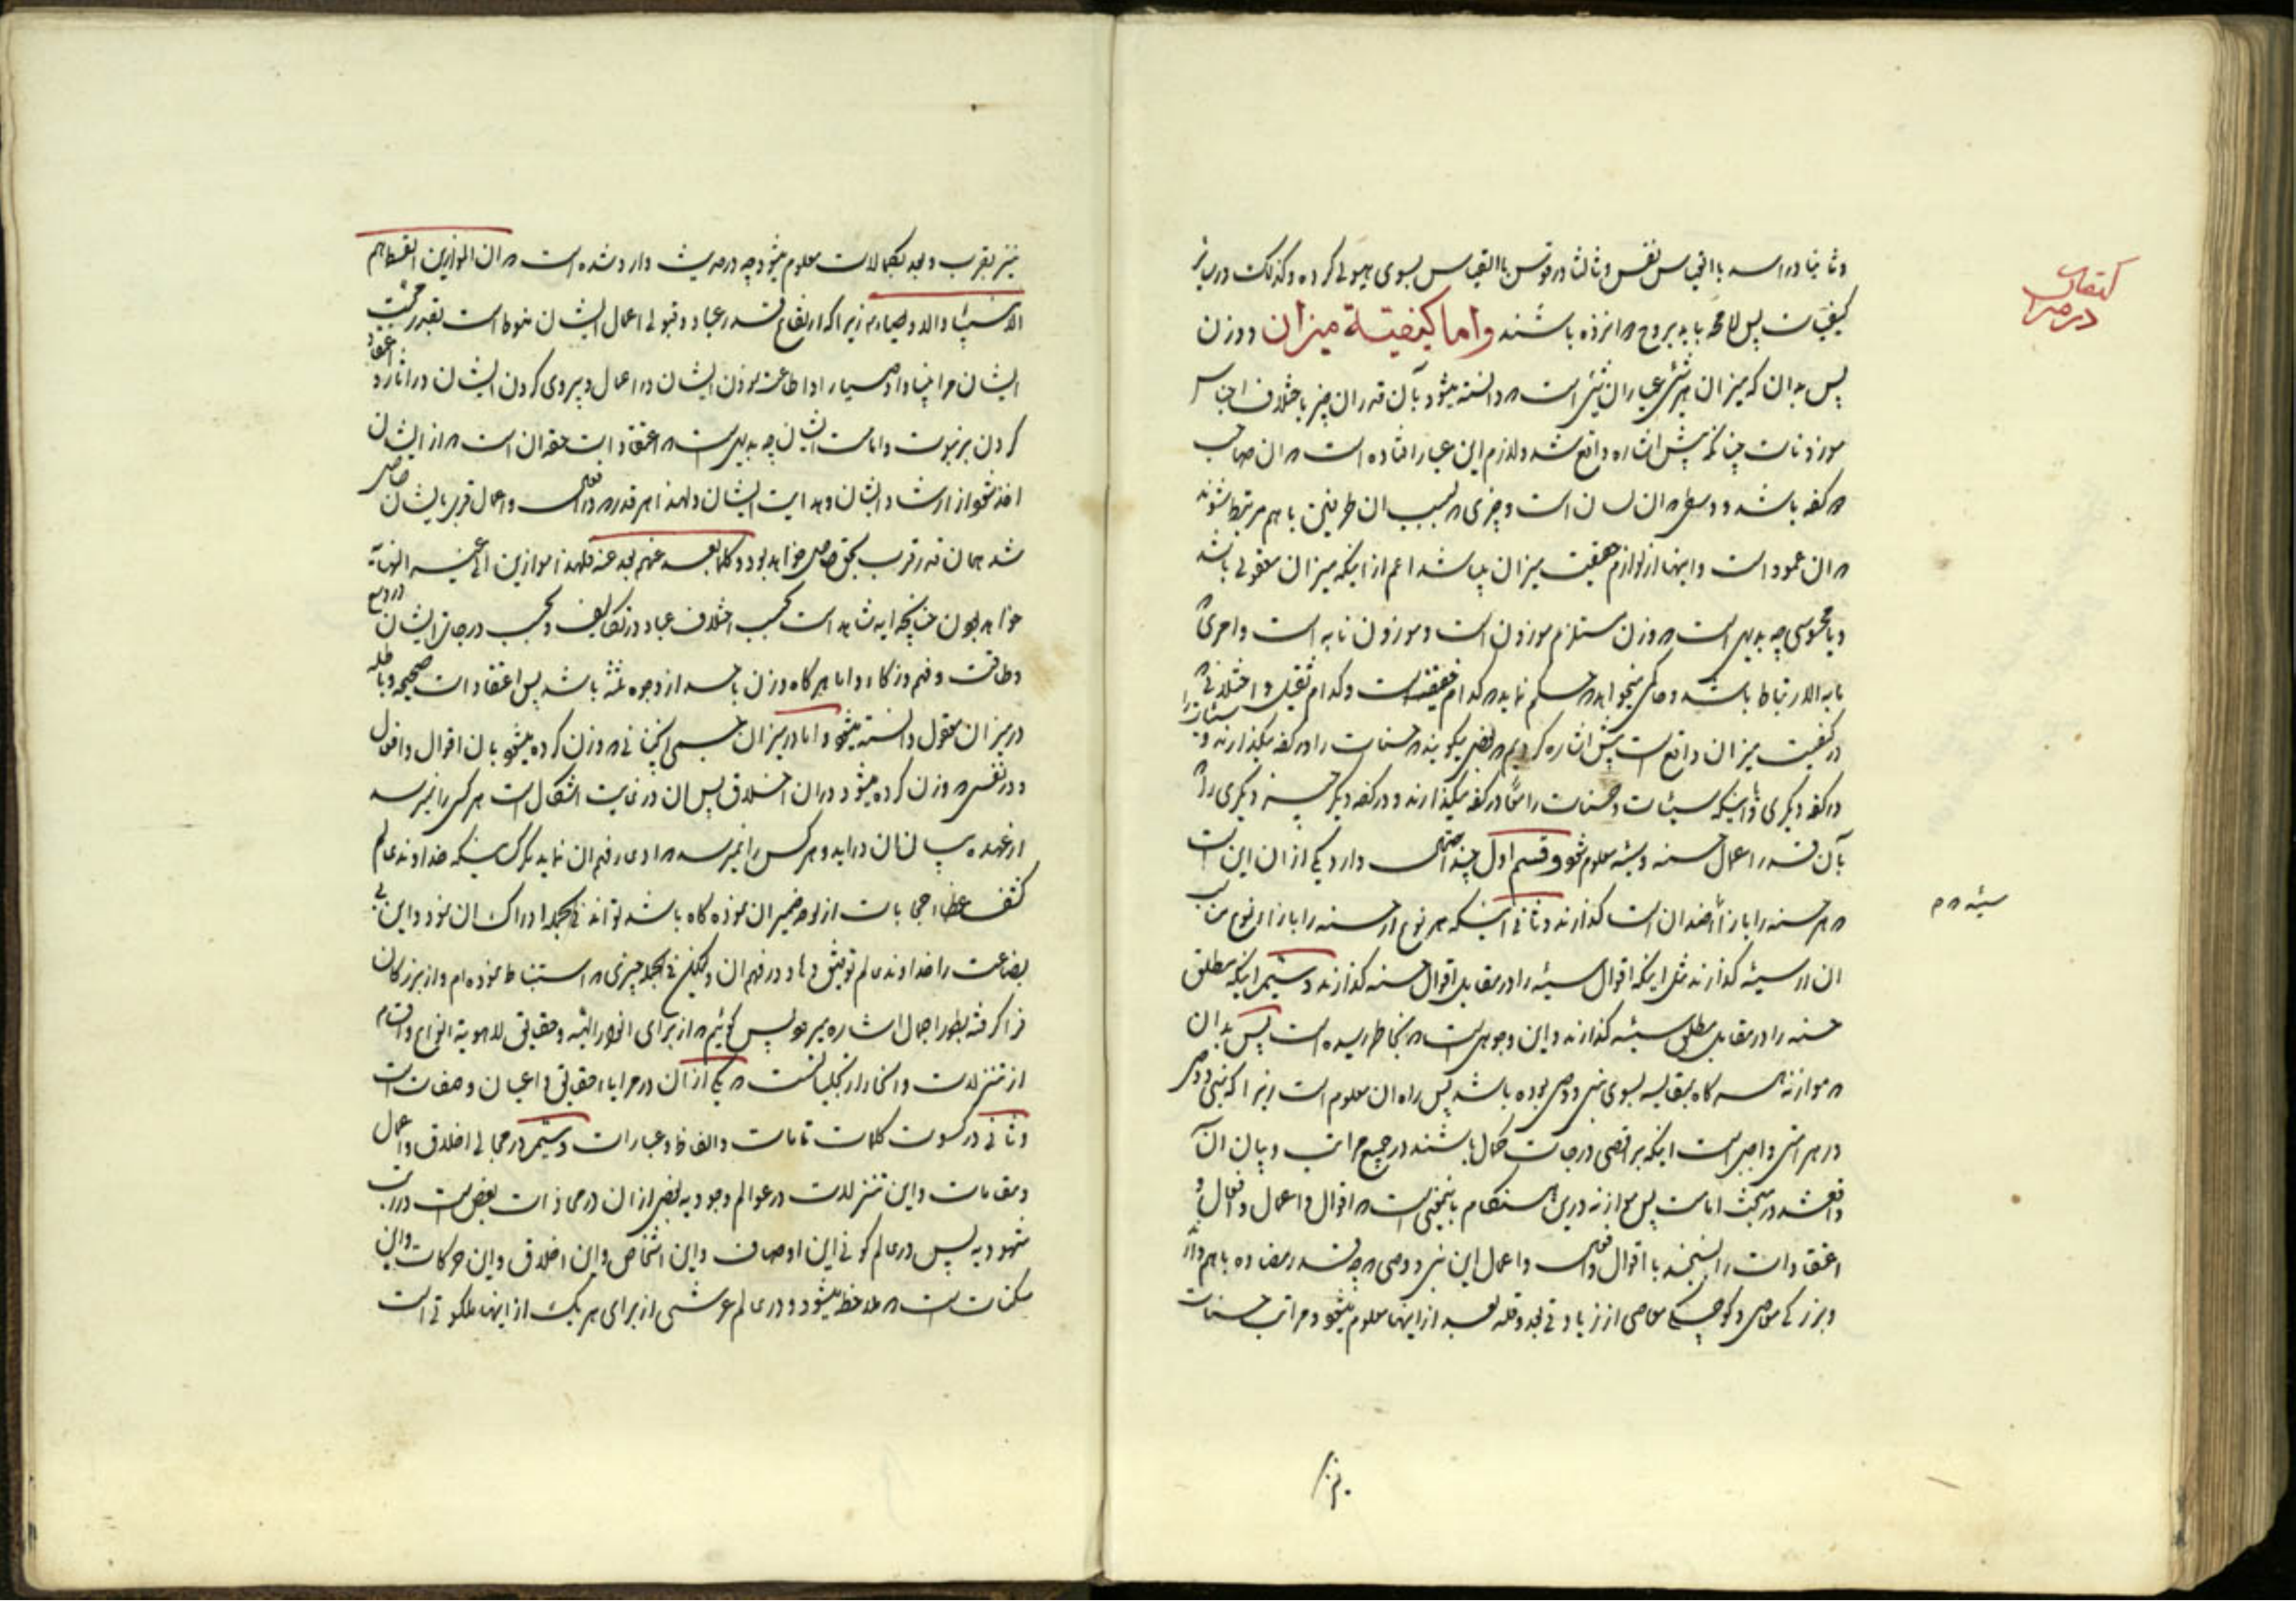 وثانیا در اسد با انفی س نفس وثالثا در قوس با القیاس بسوی هیولی کرده وکذلک در سایر
کیفیات پس لا محاله باید بروح ۸ انزده باشند واما کیفیتة میزان ووزن
پس بدان که میزان هر شئ عیار ان شئ است ۸ دانسته میشود بآن قدر ان چیز باختلاف اجناس
موزونات چنانکه پیش اشاره واقع شد ولازم این عیار افتاده است ۸ ان صاحب
۸ کفه باشد ووسطی ۸ ان لسان است وچیزی ۸ بسبب ان طرفین با هم مرتبط میشوند
۸ ان عمود است واینها از لوازم حقیقت میزان میباشد اعم از اینکه میزان معقولی باشد
ویا محسوسی چه بدیهی است ۸ وزن مستلزم موزون است وموزون نابه است وامری
مابه الارتباط باشد وحاکمی میخواهد ۸ حکم نماید ۸ کدام خفیف است وکدام ثقیل واختلافی
در کیفیت میزان واقع است پیش اشاره کردیم ۸ بعضی میگویند ۸ حسنات را در کفه میگذارند وسیئات را
در کفه دیگری ویا اینکه سیئات وحسنات را معا در کفه میگذارند ودر کفه دیگر چیز دیگری را
بآن قدر اعمال حسنه وسیئه معلوم شود وقسم اول چند احتمال دارد یکی از ان این است
۸ هر حسنه را بازاء ضد ان است گذارند وثانی اینکه هر نوع از حسنه را بازاء نوع مناسب
ان از سیئه گذارند مثل اینکه اقوال سیئه را در مقابل اقوال حسنه گذارند وسیم اینکه مطلق
حسنه را در مقابل مطلق سیئه گذارند واین وجوهی است ۸ بخاطر رسیده است پس بدان
۸ موازنه هر گاه بمقایسه بسوی نبی ووصی بوده باشد پس راه ان معلوم است زیرا که نبی ووصی
در هر امتی واجب است اینکه بر اقصی درجات کمال باشند در جمیع مراتب وبیان ان
واقع شد در مبحث امامت پس موازنه درین هنگام باینجنی است ۸ اقوال واعمال وافعال و
اعتقادات را بسنجند با اقوال وافعال واعمال این نبی ووصی ۸ چه قدر مضاده باهم دارد
وبزرگی معاصی وکوچکی معاصی از زیادتی بعد وقلة بعد از اینها معلوم میشود ومراتب حسنات
کیفیات در صراط
سیئه ۸۸
نیز
نیز بقرب وبعد بکمالات معلوم میشود چه در حدیث وارد شده است ۸ ان الموازین القسط هم
الانبیاء والاوصیاء ۸ زیرا که ارتفاع قدر عباد وقبولی اعمال ایشان منوط است بقدر محبت
ایشان مر انبیاء واوصیاء را واطاعت نمودن ایشان در اعمال وپیروی کردن ایشان در اثار واعتقاد
کردن بر نبوت وامامت ایشان چه بدیهی است ۸ اعتقادات حقه ان است ۸ از ایشان
اخذ شود از ارشاد ایشان وهدایت ایشان ولهذا هر قدر ۸ در افعال واعمال قرب بایشان حاصل
شد همان قدر قرب بحق حاصل خواهد بود وکلما بعد عنهم بعد عنه فلهذا موازین الی غیر النهایة
خواهد بود چنانچه ایه شاهد است بحسب اختلاف عباد در تکالیف وبحسب درجات ایشان در وسع
وطاقت وفهم وذکاء واما هر گاه وزن باحد از وجوه ثلثه باشد پس اعتقادات صحیحه وباطله
در میزان معقول دانسته میشود واما در میزان جسمی انچنانی ۸ وزن کرده میشود بان اقوال وافعال
ودر نفسی ۸ وزن کرده میشود در ان اخلاق پس ان در غایت اشکال است هر کس را نمیرسد
از عهده بیان ان دراید وهر کس را نمیرسد ۸ ادعای فهم ان نماید مگر کسیکه خداوند عالم
کشف غطاء حجابات از لوح ضمیر ان نموده گاه باشد تواند فی الجمله ادراک ان نمود واین بی
بضاعت را خداوند عالم توفیق داد در فهم ان ولیکن فی الجمله چیزی ۸ استنباط نموده ام واز بزرگان
فرا گرفته بطور اجمال اشاره میرود پس گوئیم ۸ از برای انوار الهیه وحقایق لاهوتیة انواع واقسام
از تنزلات وانحاء از تجلیات است ۸ یکی از ان در مرایا حقایق واعیان وصفات است
وثانی در کسوت کلمات تامات والفاظ وعبارات وسیم در مجالی اخلاق واعمال
ومقامات واین تنزلات در عوالم وجودیه بعضی از ان در محاذات بعض است در مراتب
شهودیه پس در عالم کونی این اوصاف واین اشخاص واین اخلاق واین حرکات واین
سکنات است ۸ ملاحظه میشود ودر عالم عرشی از برای هر یک از اینها ملکوتی است